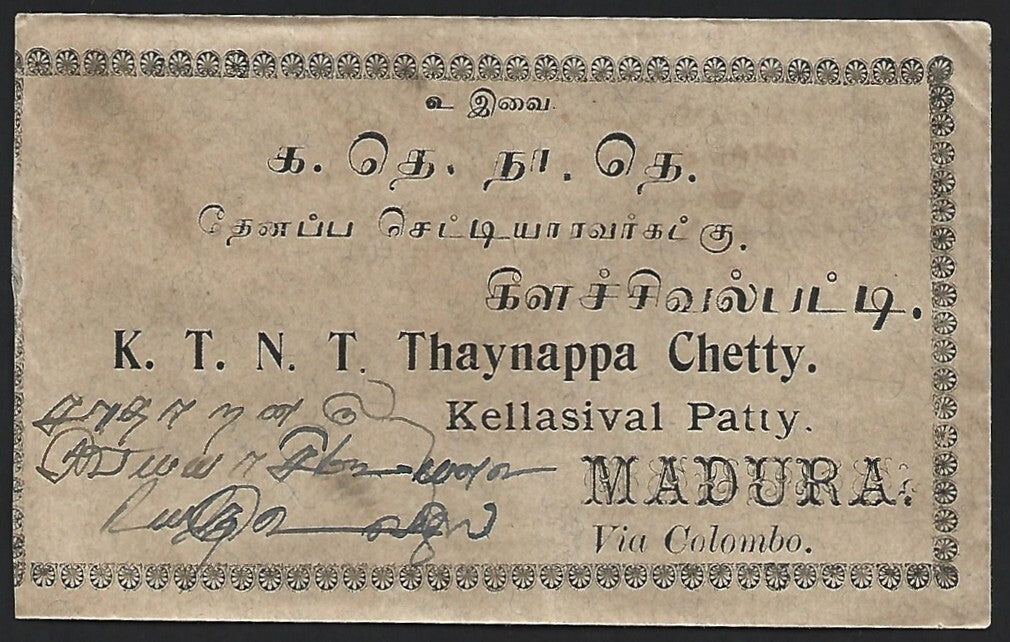 உ இவை
க. தெ. நா. தெ.
தேனப்ப செட்டியாரவர்கட்கு.
கீளச்சிவல்பட்டி.
K. T. N. T. Thaynappa Chetty.
Kellasival Patty.
MADURA.
Via Colombo.